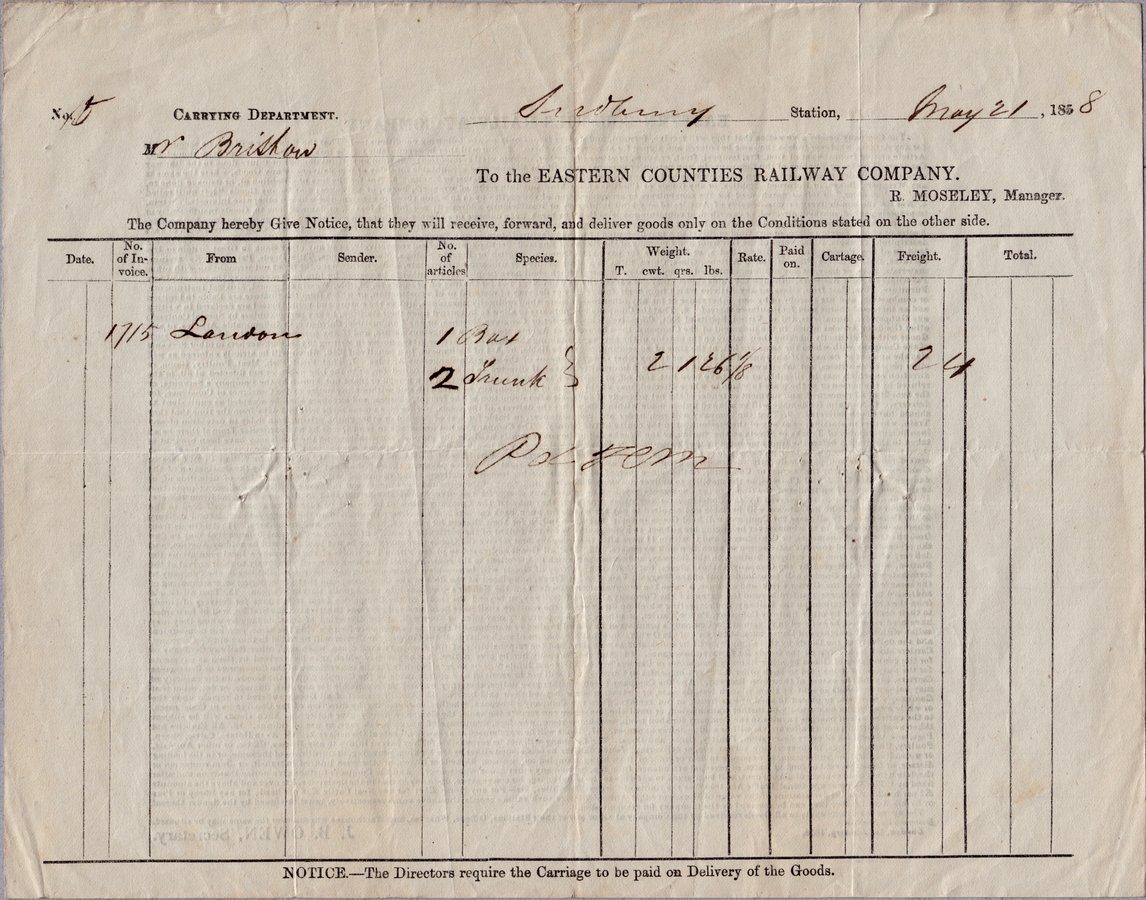 No. CARRYING DEPARTMENT. Sudbury Station, May 21, 1858
Mr Bristow
To the EASTERN COUNTIES RAILWAY COMPANY.
R. MOSELEY, Manager.
The Company hereby Give Notice, that they will receive, forward, and deliver goods only on the Conditions stated on the other side.
Date. No. of In-voice. From Sender. No. of articles Species. Weight. T. cwt. qrs. lbs. Rate. Paid on. Cartage. Freight. Total.
1715 London 1 Box
2 Trunk } 2 1 26 1/8 2 4
Pd
J. B. OWEN, Secretary.
NOTICE.—The Directors require the Carriage to be paid on Delivery of the Goods.